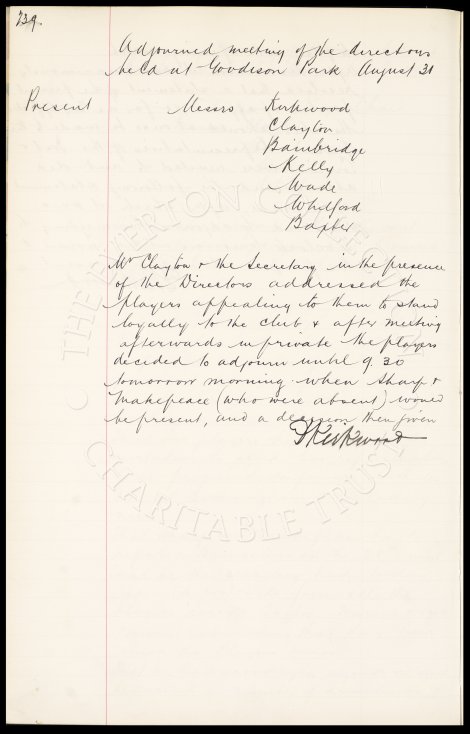 239.
Adjourned meeting of the directors
held at Goodison Park August 31
Present Messrs Kirkwood
Clayton
Bainbridge
Kelly
Wade
Whitford
Baxter
Mr Clayton & the Secretary in the presence
of the Directors addressed the
players appealing to them to stand
loyally to the club & after meeting
afterwards in private the players
decided to adjourn until 9.30
tomorrow morning when Sharp &
Makepeace (who were absent) would
be present, and a decision then given
D Kirkwood
THE EVERTON COLLECTION
CHARITABLE TRUST